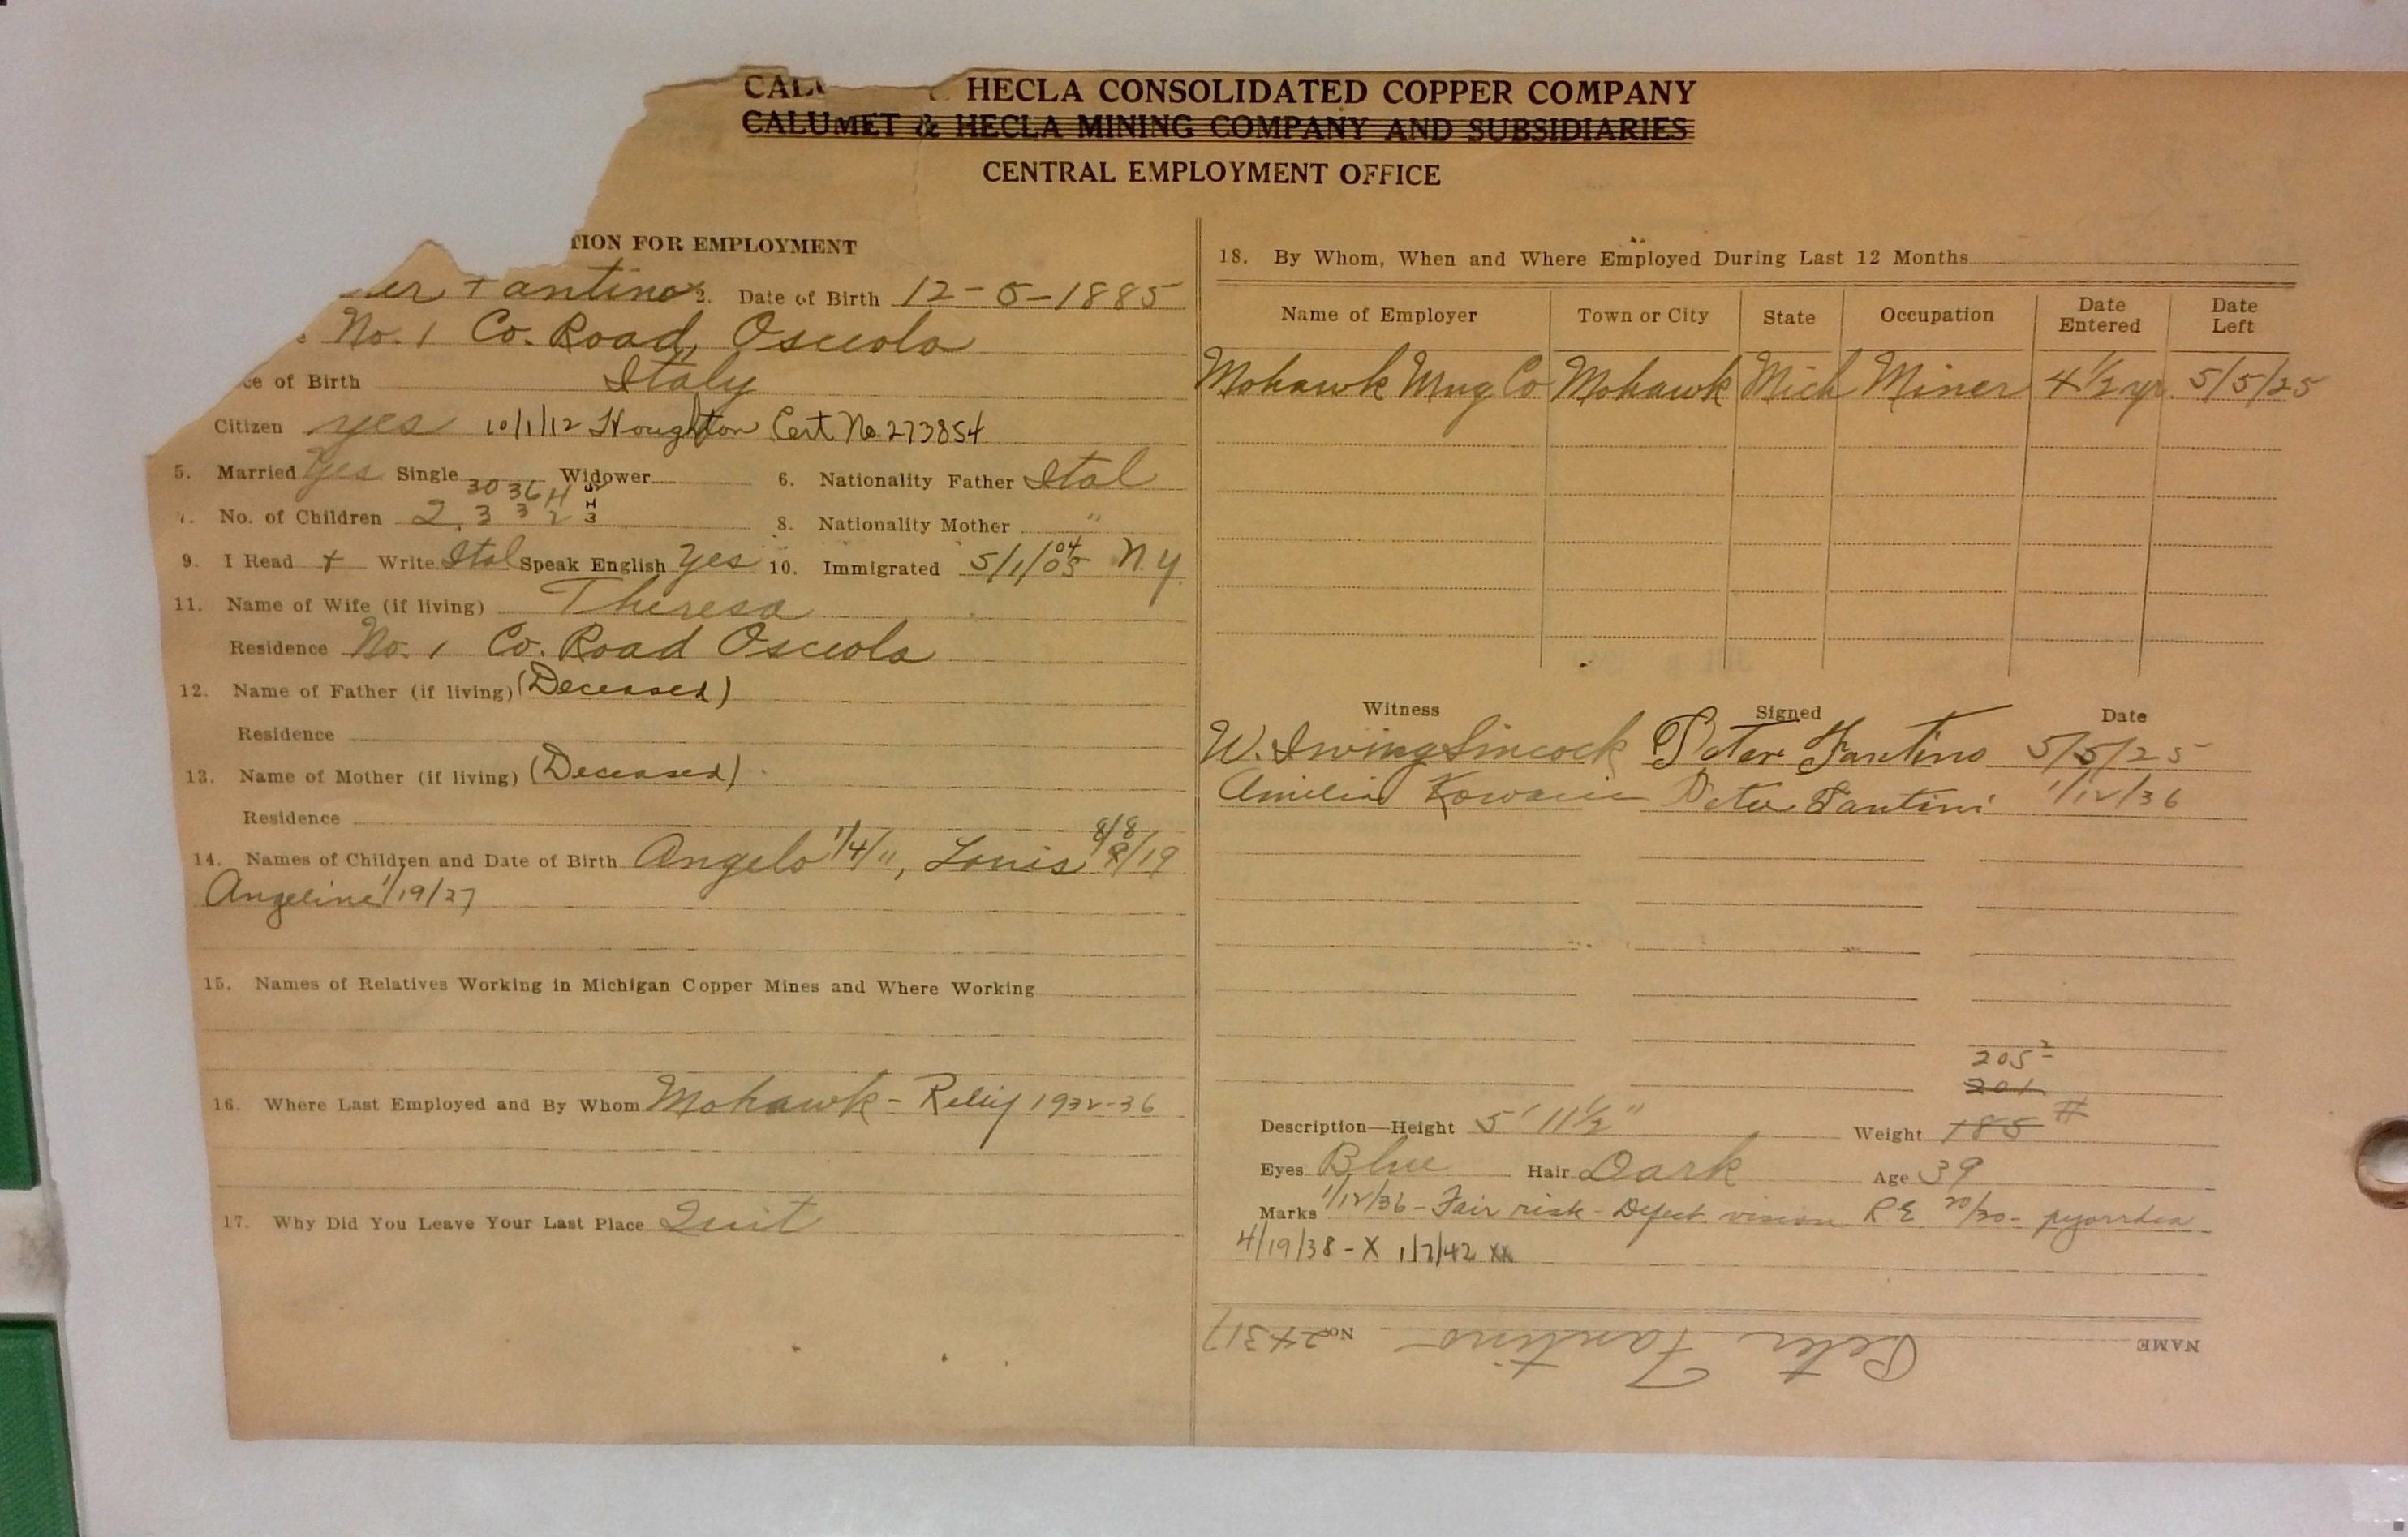 HECLA CONSOLIDATED COPPER COMPANY
CALUMET & HECLA MINING COMPANY AND SUBSIDIARIES
CENTRAL EMPLOYMENT OFFICE
TION FOR EMPLOYMENT
er Fantino 2. Date of Birth 12-5-1885
No. 1 Co. Road, Osceola
ce of Birth Italy
Citizen yes 10/1/12 Houghton Cert No. 273854
5. Married Yes Single Widower 6. Nationality Father Ital
30 36 H
7. No. of Children 2, 3 3 2 3 8. Nationality Mother "
9. I Read + Write Ital Speak English Yes 10. Immigrated 5/1/05 04 N.Y.
11. Name of Wife (if living) Theresa
Residence No. 1 Co. Road Osceola
12. Name of Father (if living) (Deceased)
Residence
13. Name of Mother (if living) (Deceased)
Residence
14. Names of Children and Date of Birth Angelo 1/4/11, Louis 8/8/19
Angeline 1/19/27
15. Names of Relatives Working in Michigan Copper Mines and Where Working
16. Where Last Employed and By Whom Mohawk - Relief 1932-36
17. Why Did You Leave Your Last Place Quit
18. By Whom, When and Where Employed During Last 12 Months
Name of Employer Town or City State Occupation Date Entered Date Left
Mohawk Mng Co Mohawk Mich Miner 4 1/2 yr. 5/5/25
Witness Signed Date
W. Irving Sincock Peter Fantino 5/5/25
Amelia Peter Fantini 1/12/36
205 2
201
Description—Height 5' 11 1/2" Weight 185 #
Eyes Blue Hair Dark Age 39
Marks 1/12/36 - Fair risk - Defect vision R E 20/30 - pyorrhea
4/19/38 - X 1/7/42 XX
NAME Peter Fantino No. 24317